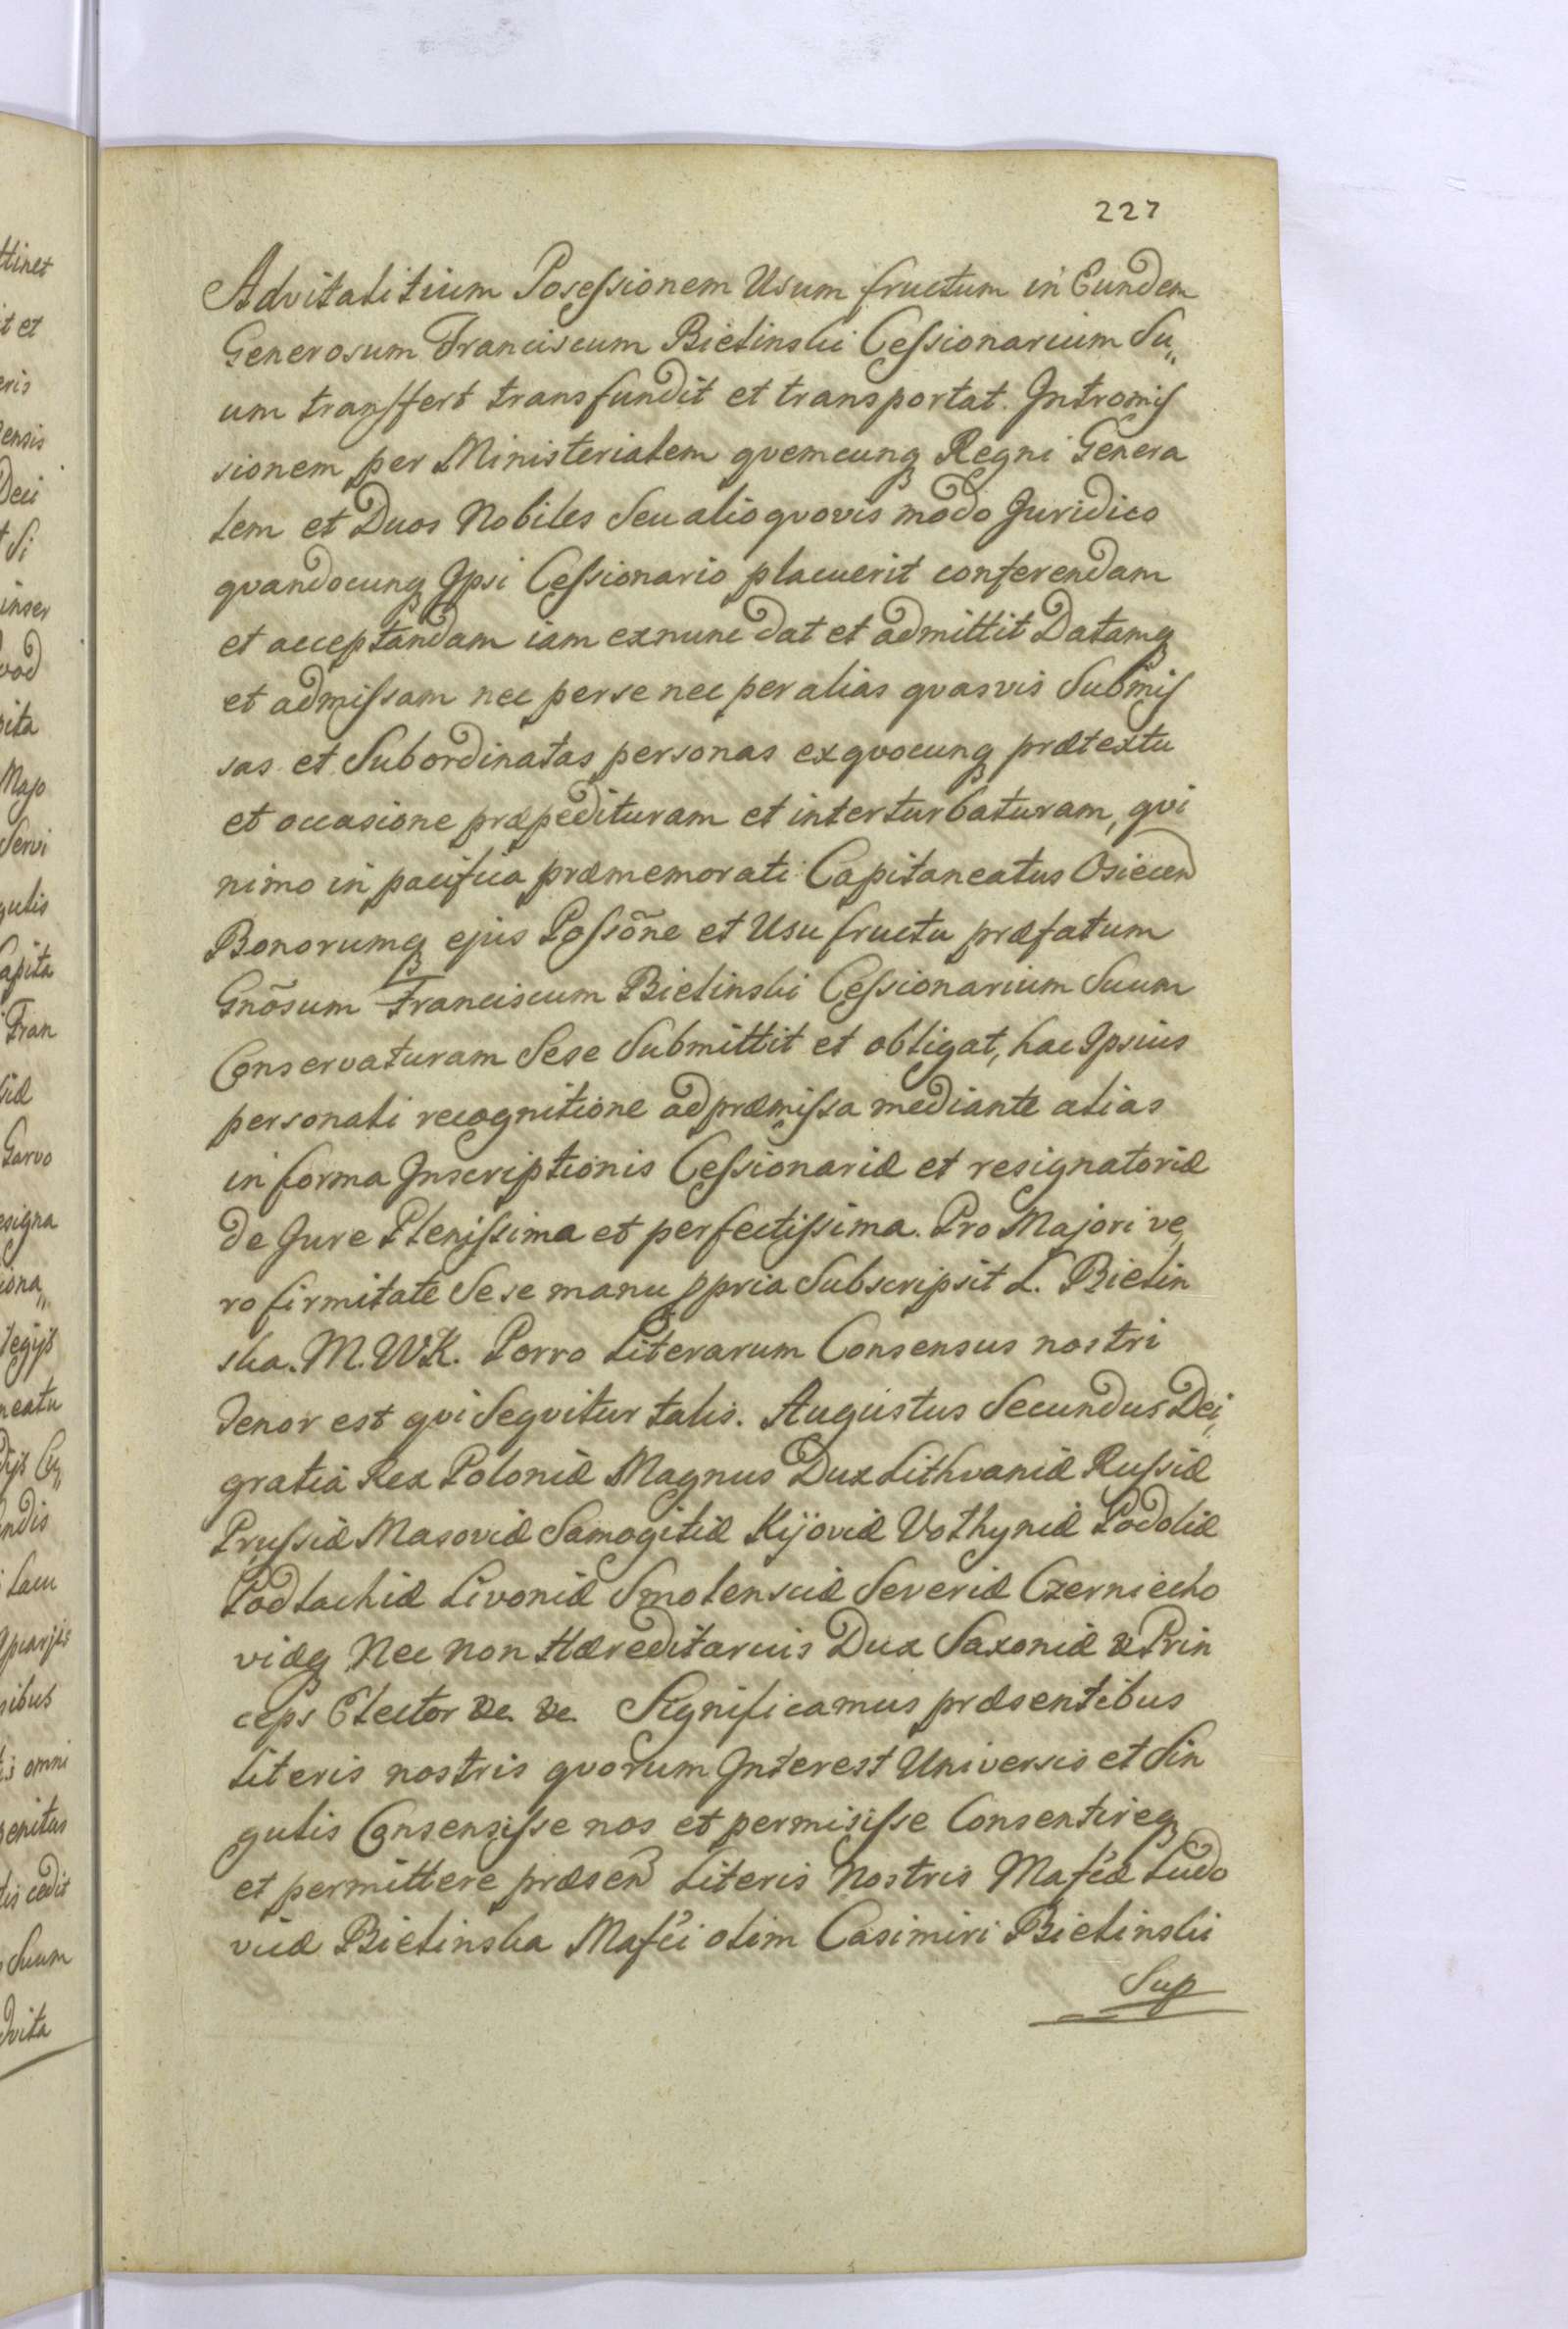 227
Advitalitium Posessionem Usum fructum in Eundem
Generosum Franciscum Bielinski Cessionarium Su„
um transfert transfundit et transportat. Intromis
sionem per Ministerialem qvemcunq Regni Genera
lem et Duos Nobiles Seu alio qvovis modo Juridico
qvandocunq Ipsi Cessionario placuerit conferendam
et acceptandam iam exnunc dat et admittit Datamq
et admissam nec per se nec per alias qvasvis Submis
sas et Subordinatas personas ex qvocunq prætextu
et occasione præpedituram et interturbaturam, qvi
nimo in pacifica præmemorati Capitaneatus Osiecen
Bonorumq ejus Possõne et Usu fructu præfatum
Gnõsum Franciscum Bielinski Cessionarium Suum
Conservaturam Sese Submittit et obligat, hac Ipsius
personali recognitione ad præmissa mediante alias
in forma Inscriptionis Cessionariæ et resignatoriæ
de Jure Plenissima et perfectissima. Pro Majori ve„
ro firmitate Sese manu ppria Subscripsit L. Bielin
ska. M.W.K. Porro Literarum Consensus nostri
Tenor est qvi Seqvitur talis. Augustus Secundus Dei„
gratia Rex Poloniæ Magnus Dux Lithvaniæ Russiæ
Prussiæ Masoviæ Samogitiæ Kijoviæ Volhyniæ Podoliæ
Podlachiæ Livoniæ Smolensciæ Severiæ Czerniecho
viæq Nec non Hæreditarius Dux Saxoniæ & Prin
ceps Elector &c. &c. Significamus præsentibus
Literis nostris qvorum Interest Universis et Sin
gulis Consensisse nos et permisisse Consentireq
et permittere præsen Literis Nostris Mafcæ Ludo
vicæ Bielinska Mafci olim Casimiri Bielinski
Sup